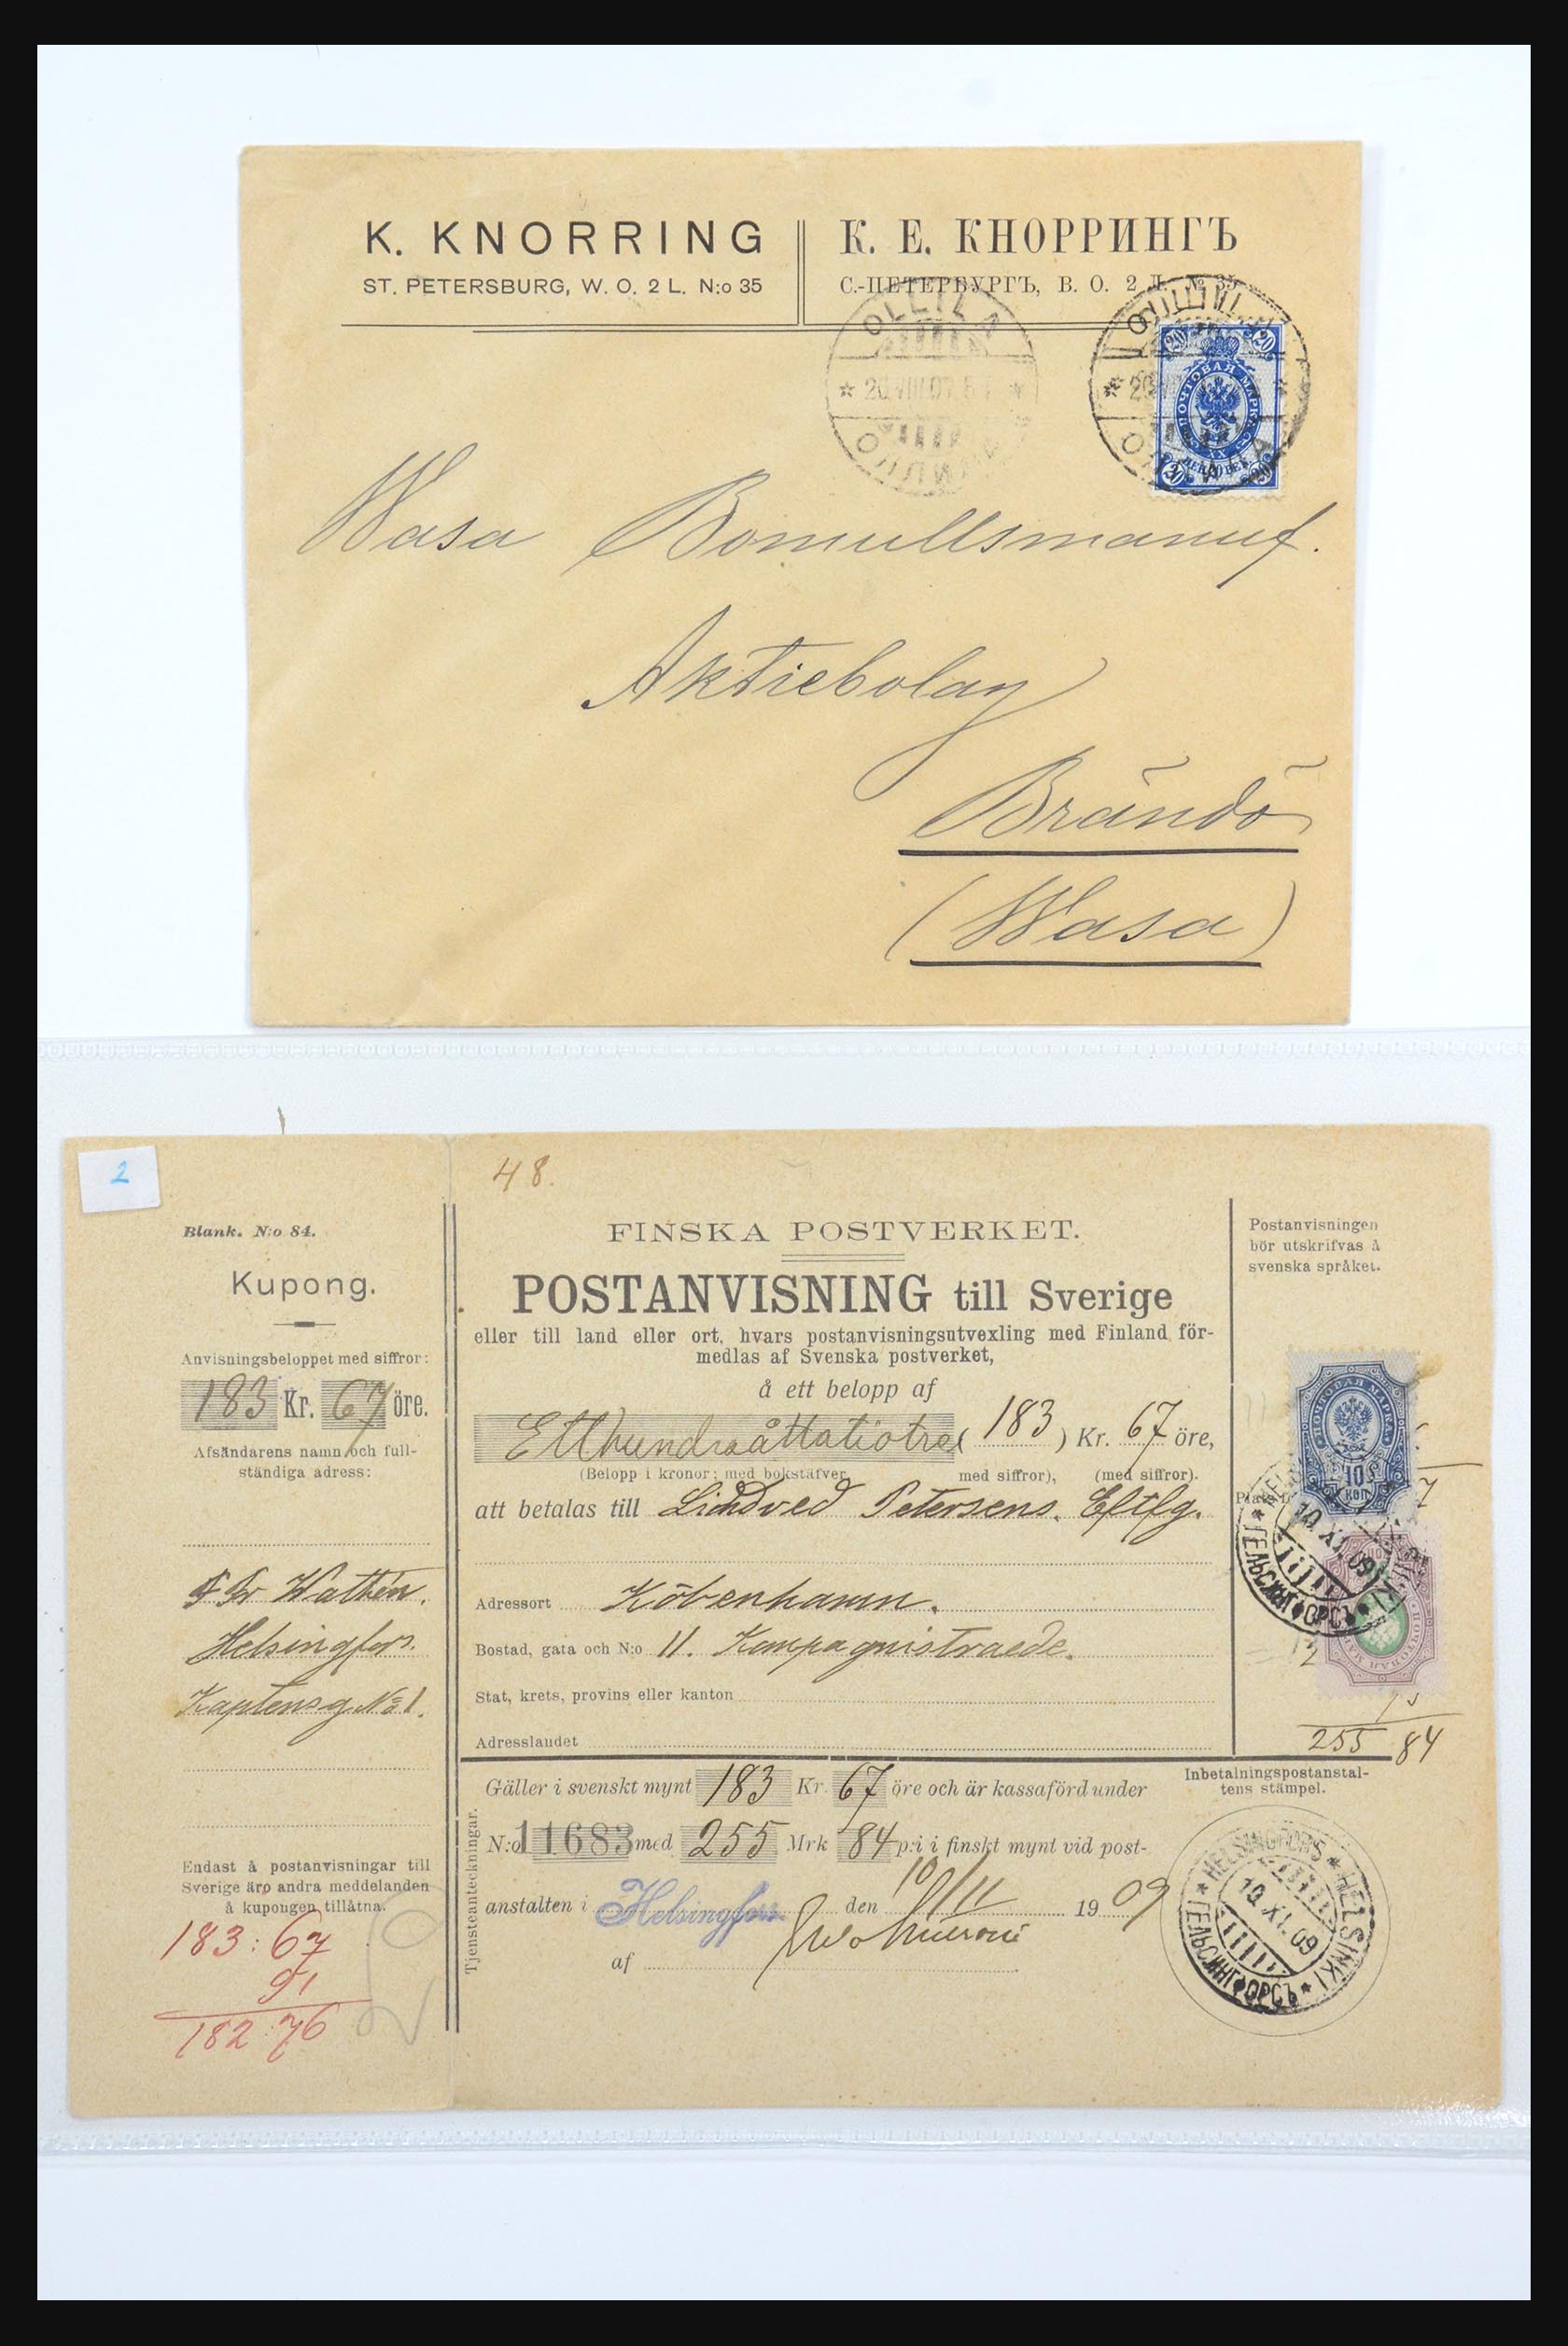 K. KNORRING
ST. PETERSBURG, W. O. 2 L. N:o 35
К. Е. КНОРРИНГЪ
С.-ПЕТЕРБУРГЪ, В. О. 2 Л. № 35
20 20
ПОЧТОВАЯ МАРКА
20 20
Wasa Bomullsmanuf.
Aktiebolag
Brändö
(Wasa)
2
48.
Blank. N:o 84.
Kupong.
Anvisningsbeloppet med siffror:
183 Kr. 67 öre.
Afsändarens namn och full-
ständiga adress:
Wathén.
Helsingfors.
Kaptensg. No 1.
Endast å postanvisningar till
Sverige äro andra meddelanden
å kupongen tillåtna.
183:67
91
182:76
FINSKA POSTVERKET.
POSTANVISNING till Sverige
eller till land eller ort, hvars postanvisningsutvexling med Finland för-
medlas af Svenska postverket,
å ett belopp af
Etthundraåttatiotre ( 183 ) Kr. 67 öre,
(Belopp i kronor: med bokstäfver, med siffror), (med siffror).
att betalas till Lindved Petersens. Eftfg.
Adressort Köbenhamn.
Bostad, gata och N:o 11. Kompagnistraede.
Stat, krets, provins eller kanton
Adresslandet
Postanvisningen
bör utskrifvas å
svenska språket.
ПОЧТОВАЯ МАРКА
10 КОП
10 XI. 09
ГЕЛЬСИНГФОРСЪ
255 84
Tjensteanteckningar.
Gäller i svenskt mynt 183 Kr. 67 öre och är kassaförd under
N:o 11683 med 255 Mrk 84 p:i i finskt mynt vid post-
anstalten i Helsingfors den 10/11 1909
af
Inbetalningspostanstal-
tens stämpel.
HELSINGFORS * HELSINKI
10. XI. 09
ГЕЛЬСИНГФОРСЪ